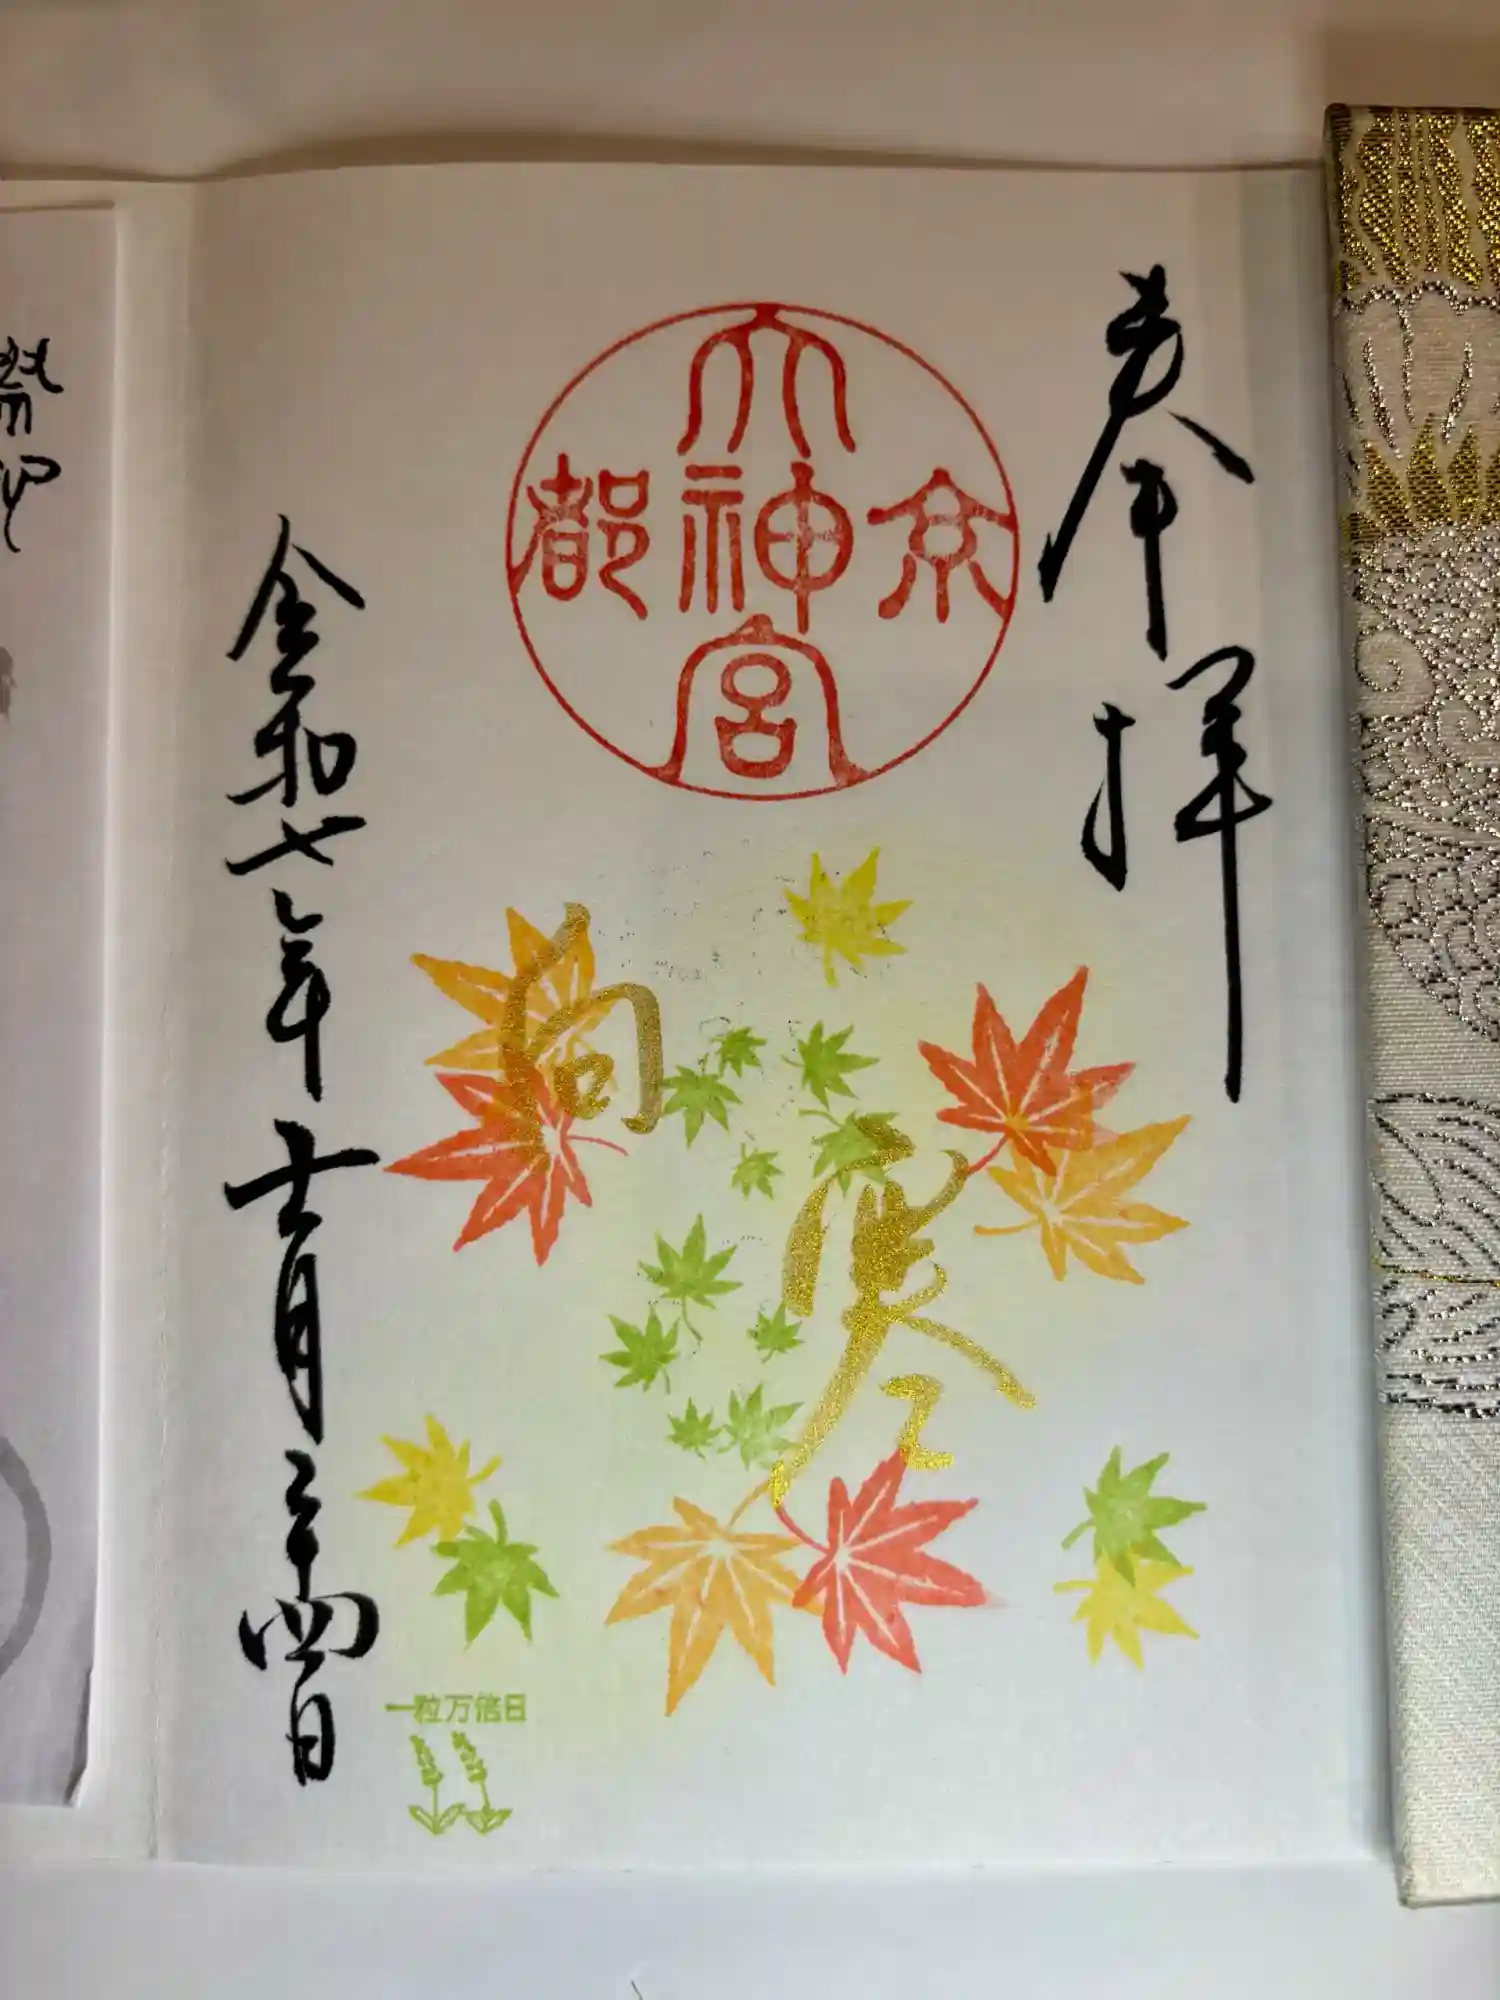 奉拝
京都
大神宮
向寒
令和七年十一月二十四日
一粒万倍日